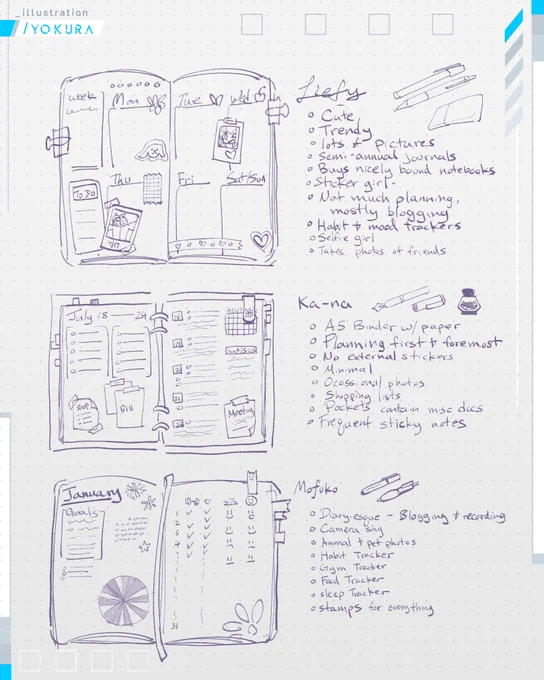 _illustration
//YOKURA
week
Mon
Tue
Wed
Thu
Fri
Sat/Sun
To Do
Liefy
Cute
Trendy
lots of pictures
Semi-annual journals
Buys nicely bound notebooks
Sticker girl
Not much planning,
mostly blogging
Habit & mood trackers
Selfie girl
Takes photos of friends
July 18 — 24
Bill
Sat/Sun
Meeting
Ka-na
A5 Binder w/ paper
Planning first & foremost
No external stickers
Minimal
Ocassional photos
Shopping lists
Pockets contain misc docs
Frequent sticky notes
January
Goals
1
2
3
4
5
31
Mofuko
Diary-esque - Blogging & recording
Camera shy
Animal & pet photos
Habit Tracker
Gym Tracker
Food Tracker
sleep Tracker
stamps for everything